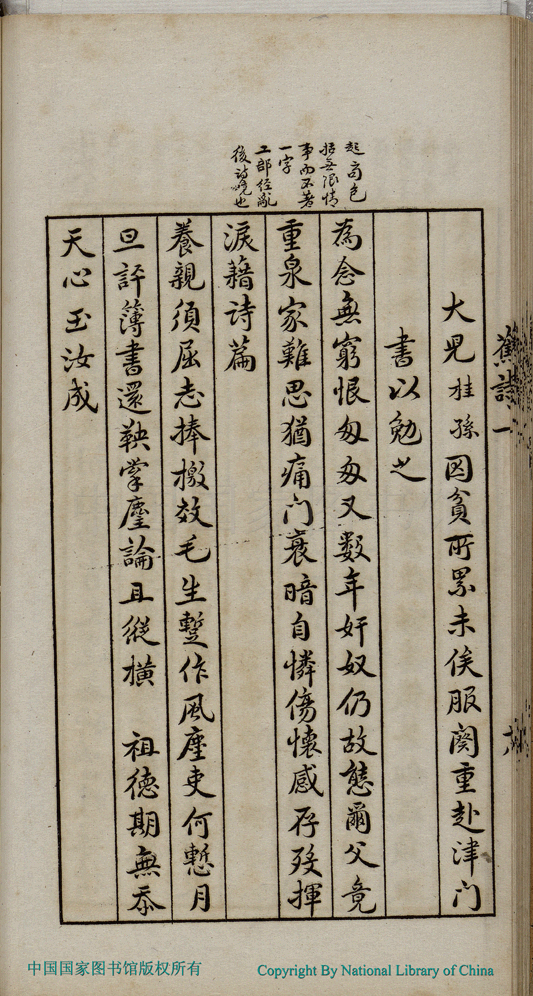 蕉詩一
起句包
括無限情
事而不著
一字
工部經亂
後詩境也
大兒桂孫因貧所累未俟服闋重赴津门
書以勉之
為念無窮恨匆匆又數年奸奴仍故態爾父竟
重泉家難思猶痛门衰暗自憐傷懷感存歿揮
淚藉詩篇
養親須屈志捧檄效毛生蹔作風塵吏何慙月
旦評簿書還鞅掌麈論且縱橫 祖德期無忝
天心玉汝成
中国国家图书馆版权所有
Copyright By National Library of China